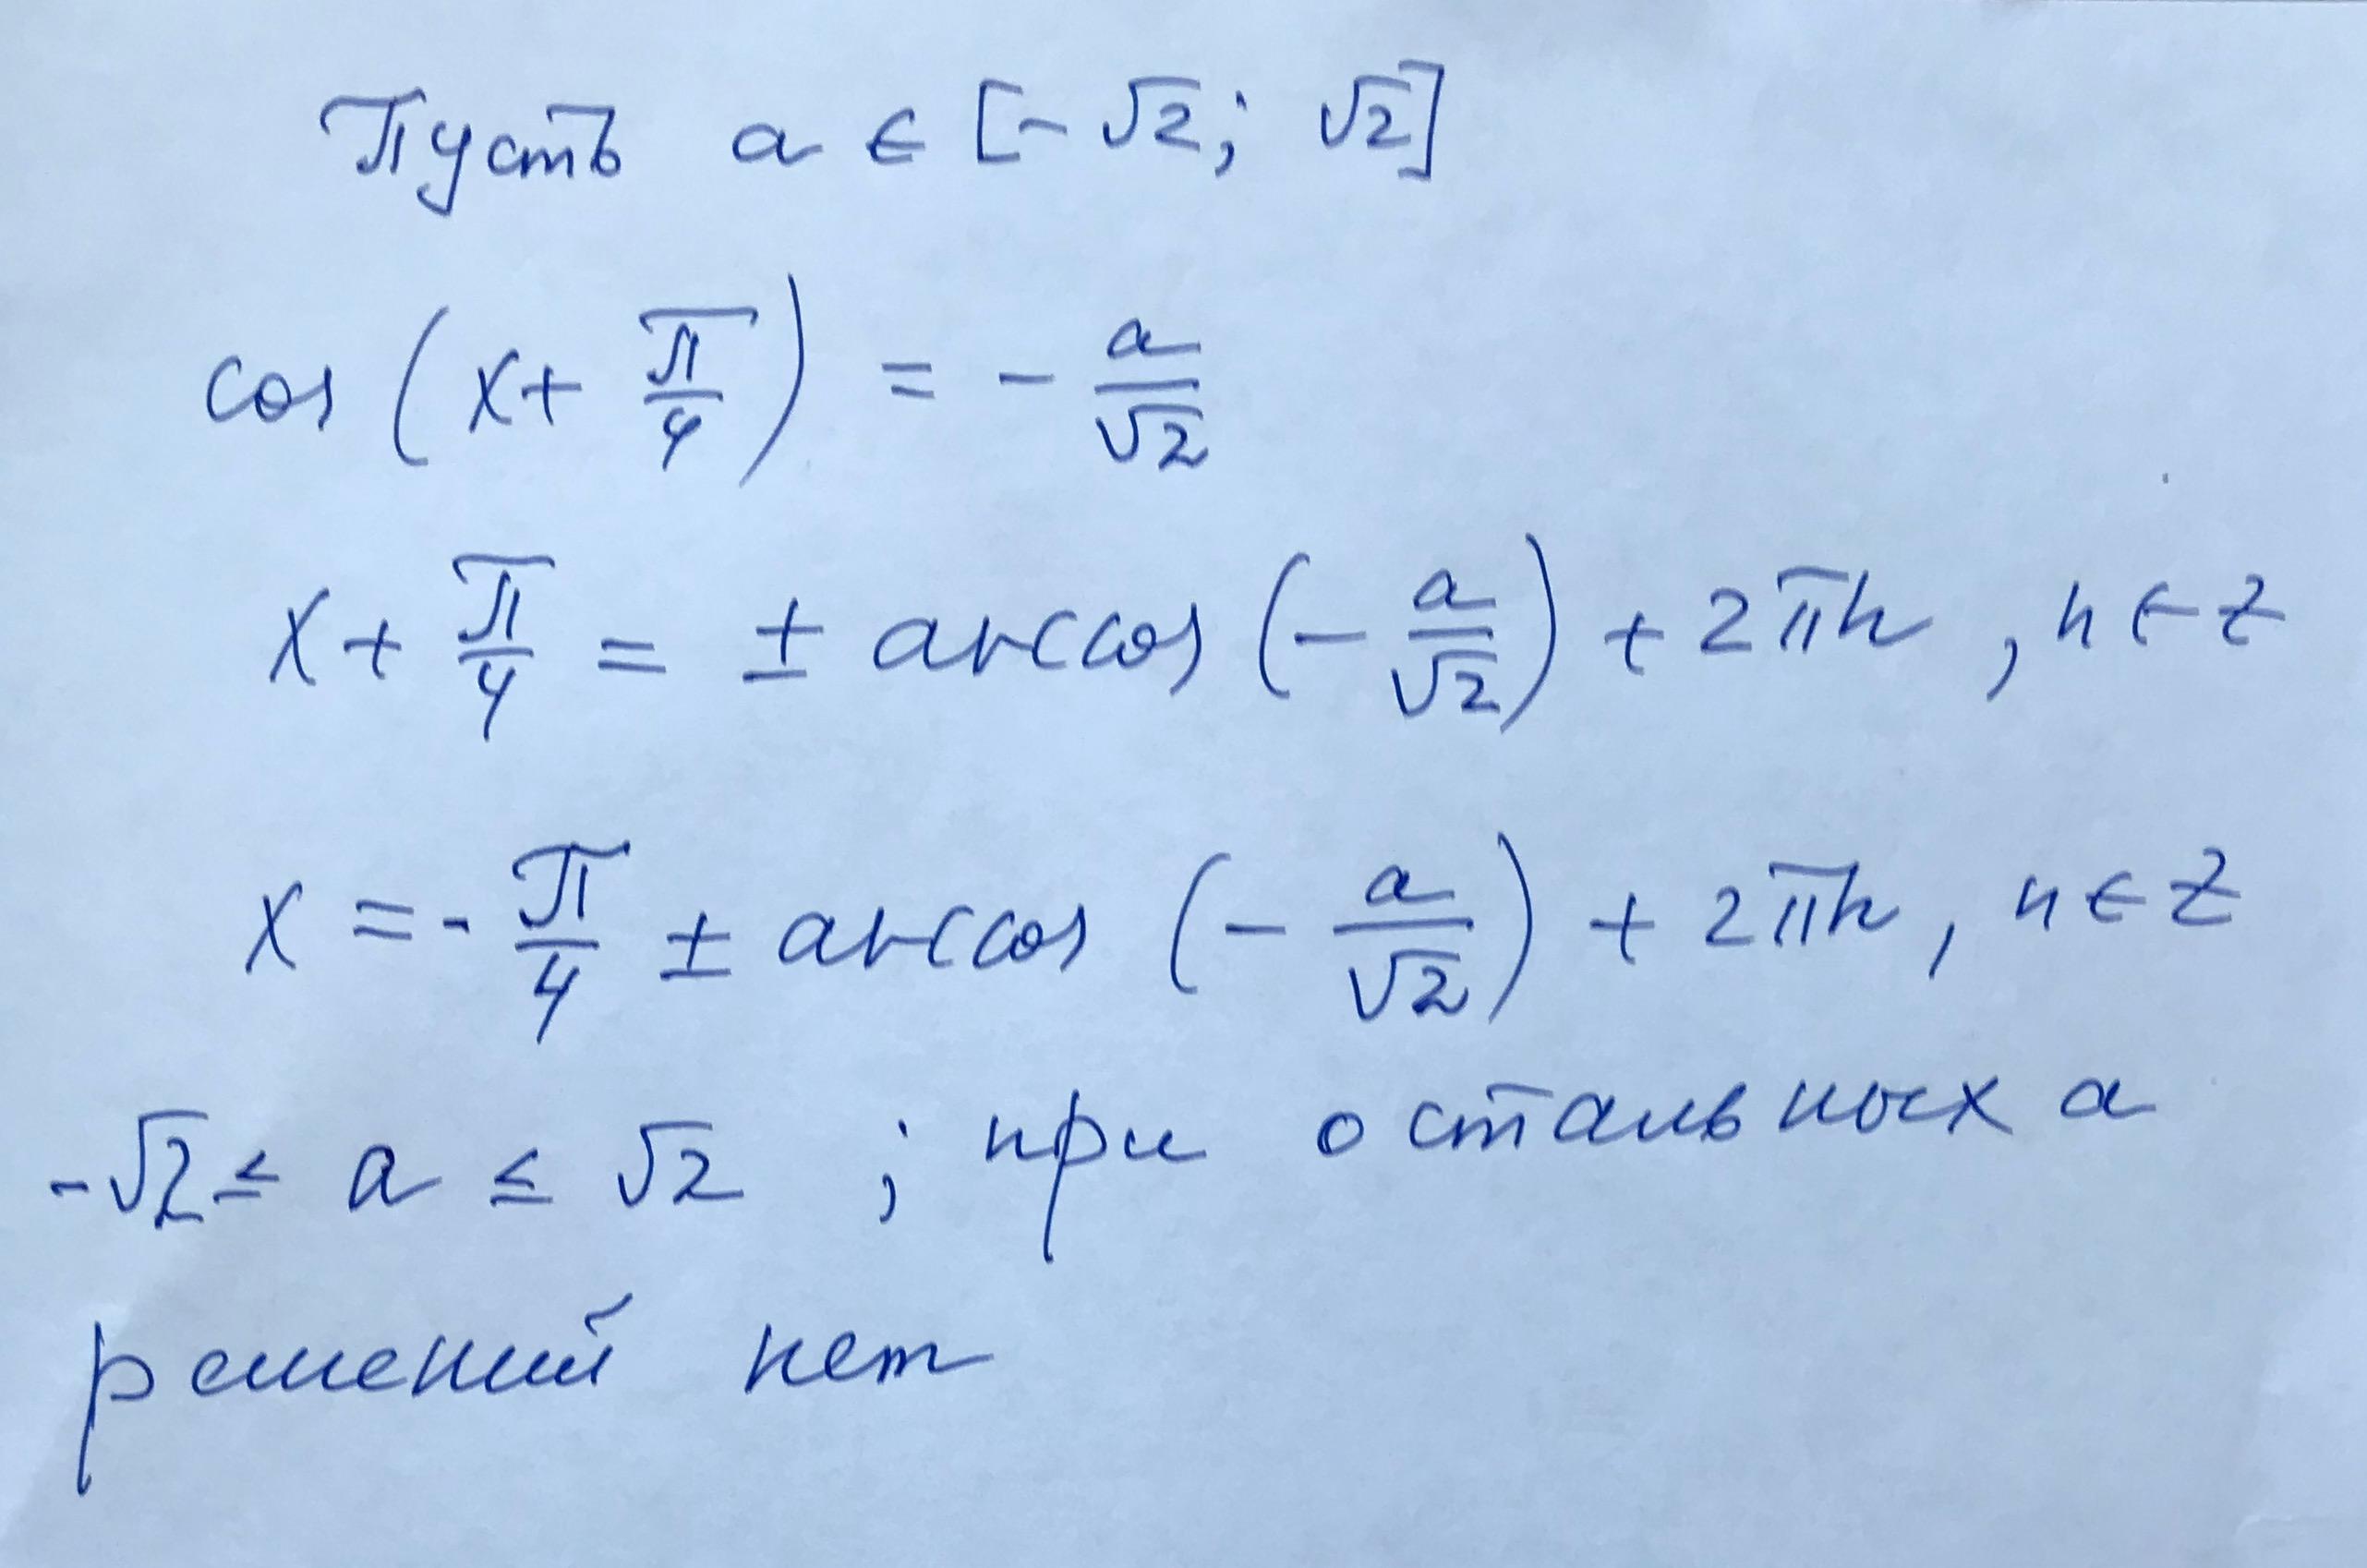 Пусть a ∈ [-√2; √2]
cos(x + π/4) = - a/√2
x + π/4 = ± arccos(- a/√2) + 2πn, n ∈ Z
x = - π/4 ± arccos(- a/√2) + 2πn, n ∈ Z
-√2 ≤ a ≤ √2 ; при остальных a
решений нет